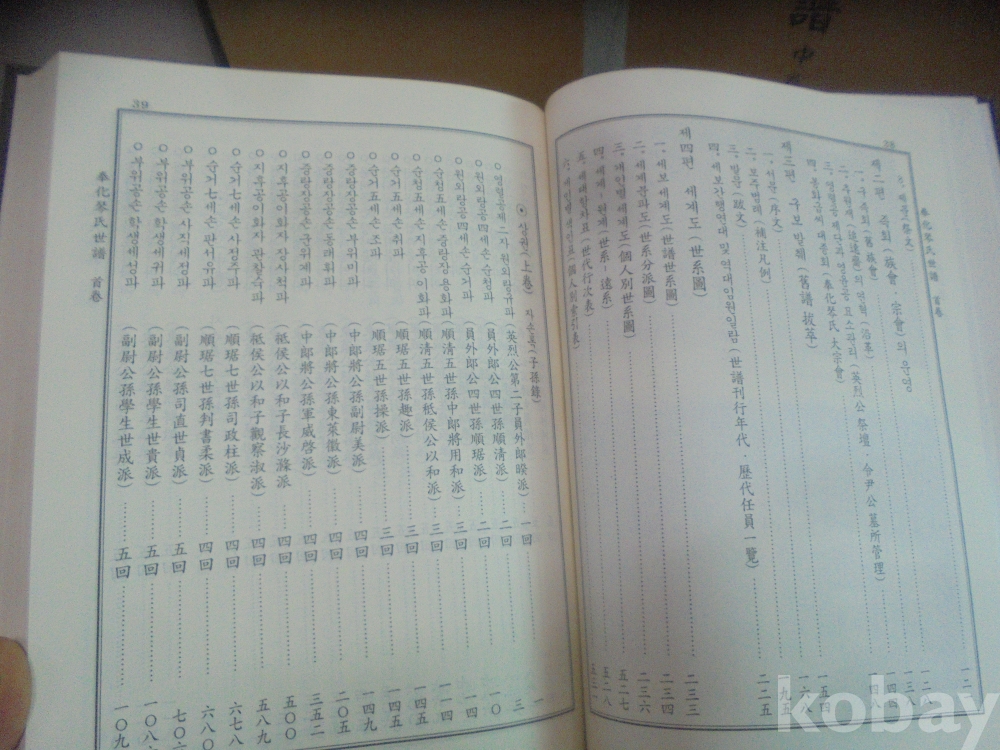 38
奉化琴氏世譜 首卷
제二편 족회(族會·宗會)의 운영
一、구족회(舊族會)
二、추원재(追遠齋)의 연혁(沿革)
三、영렬공제단과 영윤공 묘소관리(英烈公祭壇·令尹公墓所管理)
四、봉화금씨대종회(奉化琴氏大宗會)
제三편 구보발췌(舊譜拔萃) 九五
一、서문(序文)
二、보주범례(補注凡例)
三、발문(跋文)
四、세보간행연대 및 역대임원일람(世譜刊行年代·歷代任員一覽) 二二五
제四편 세계도(世系圖) 二三三
一、세보세계도(世譜世系圖) 二三三
二、세계분파도(世系分派圖) 二三六
三、개인별세계도(個人別世系圖) 五二七
四、세계·원계(世系·遠系)
五、세대항차표(世代行次表)
39
⊙ 상권(上卷) 자손록(子孫錄) 一
○ 영렬공제二자원외랑규파(英烈公第二子員外郞睽派) 一回 三
○ 원외랑공四세손순청파(員外郞公四世孫順淸派) 二回 一〇
○ 원외랑공四세손순거파(員外郞公四世孫順琚派) 二回 一四
○ 순청五세손중랑장용화파(順淸五世孫中郞將用和派) 三回
○ 순청五세손지후공이화파(順淸五世孫祗侯公以和派) 三回
○ 순거五세손취파(順琚五世孫趣派) 三回 一四五
○ 순거五세손조파(順琚五世孫操派) 三回 一四九
○ 중랑장공손부위미파(中郞將公孫副尉美派) 四回 二〇五
○ 중랑장공손동래휘파(中郞將公孫東萊徽派) 四回
○ 중랑장공손군위계파(中郞將公孫軍威啓派) 四回 三五二
○ 지후공이화자장사척파(祗侯公以和子長沙滌派) 四回 五〇〇
○ 지후공이화자관찰숙파(祗侯公以和子觀察淑派) 四回 五八九
○ 순거七세손사정주파(順琚七世孫司政柱派) 四回 六七八
○ 순거七세손판서유파(順琚七世孫判書柔派) 四回 六八〇
○ 부위공손사직세정파(副尉公孫司直世貞派) 五回 七〇六
○ 부위공손학생세귀파(副尉公孫學生世貴派) 五回 一〇八八
○ 부위공손학생세성파(副尉公孫學生世成派) 五回 一一〇九
奉化琴氏世譜 首卷
譜
中
kobay